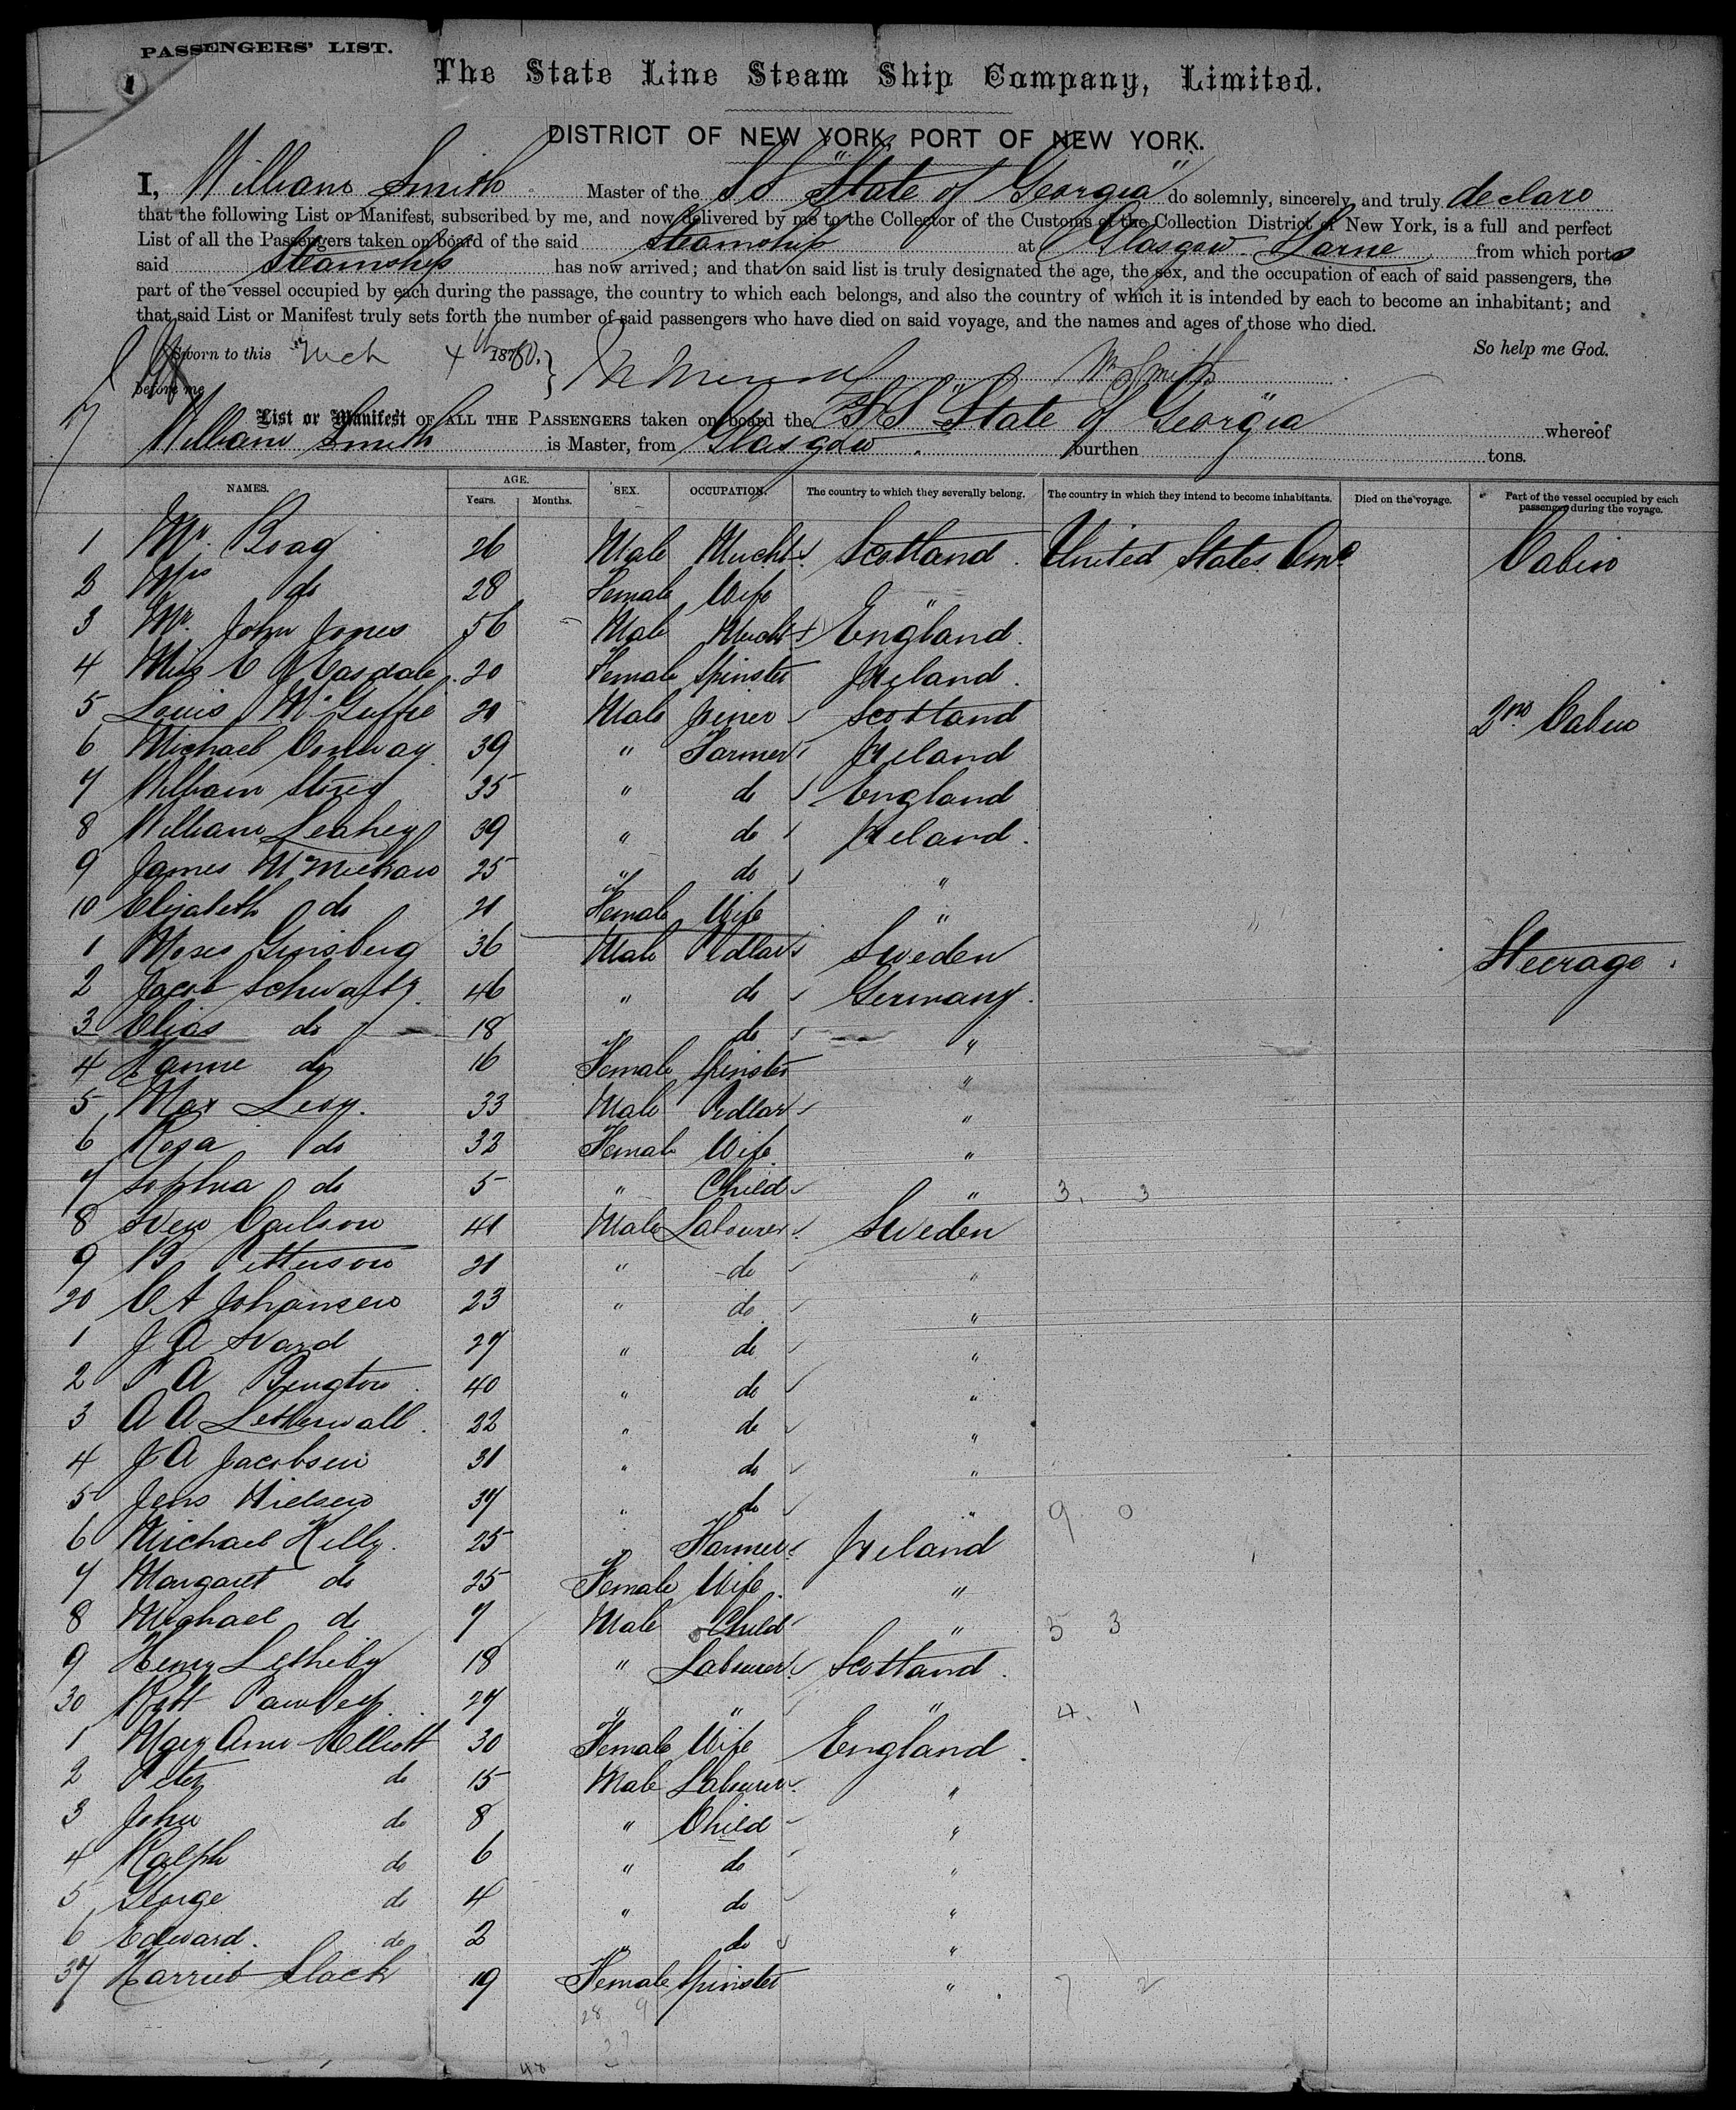 PASSENGERS' LIST.
1
The State Line Steam Ship Company, Limited.
DISTRICT OF NEW YORK, PORT OF NEW YORK.
I, William Smith Master of the SS "State of Georgia" do solemnly, sincerely and truly declare
that the following List or Manifest, subscribed by me, and now delivered by me to the Collector of the Customs of the Collection District of New York, is a full and perfect
List of all the Passengers taken on board of the said Steamship at Glasgow Larne from which ports
said Steamship has now arrived; and that on said list is truly designated the age, the sex, and the occupation of each of said passengers, the
part of the vessel occupied by each during the passage, the country to which each belongs, and also the country of which it is intended by each to become an inhabitant; and
that said List or Manifest truly sets forth the number of said passengers who have died on said voyage, and the names and ages of those who died.
Sworn to this Mch 4th 1880. So help me God.
before me Wm Smith
List or Manifest OF ALL THE PASSENGERS taken on board the SS "State of Georgia" whereof
William Smith is Master, from Glasgow burthen tons.
NAMES. AGE. Years. Months. SEX. OCCUPATION. The country to which they severally belong. The country in which they intend to become inhabitants. Died on the voyage. Part of the vessel occupied by each passenger during the voyage.
1 Mr. Boag 26 Male Mercht Scotland United States Ama Cabin
2 Mrs do 28 Female Wife "
3 Mr. John Jones 56 Male Mercht England
4 Miss C Casdale 20 Female Spinster Ireland
5 Louis McGuffie 21 Male Joiner Scotland 2nd Cabin
6 Michael Conway 39 " Farmer Ireland
7 William Storey 35 " do England
8 William Leahey 39 " do Ireland
9 James McMeekan 25 " do "
10 Elizabeth do 21 Female Wife "
1 Moses Ginsberg 36 Male Pedlar Sweden Steerage
2 Jacob Schwartz 46 " do Germany
3 Elias do 18 " do "
4 Hanne do 16 Female Spinster "
5 Max Levy. 33 Male Pedlar "
6 Rosa do 32 Female Wife "
7 Sophia do 5 " Child " 3. 3
8 Sven Carlson 41 Male Labourer Sweden
9 B Petterson 21 " do "
20 C A Johansen 23 " do "
1 J A Svard 27 " do "
2 P A Bengton 40 " do "
3 A A Letherwall 22 " do "
4 J A Jacobsen 31 " do "
5 Jens Nielsen 37 " do " 9 0
6 Michael Kelly 25 " Farmer Ireland
7 Margaret do 25 Female Wife "
8 Michael do 7 Male Child " 5 3
9 Henry Letheby 18 " Labourer Scotland
30 Robt 27 " " " 4. 1
1 Mary Ann Elliott 30 Female Wife England
2 Peter do 15 Male Labourer "
3 John do 8 " Child "
4 Ralph do 6 " do "
5 George do 4 " do "
6 Edward do 2 " do "
37 Harriet Slack 19 Female Spinster " 7 2
28 9
37
48